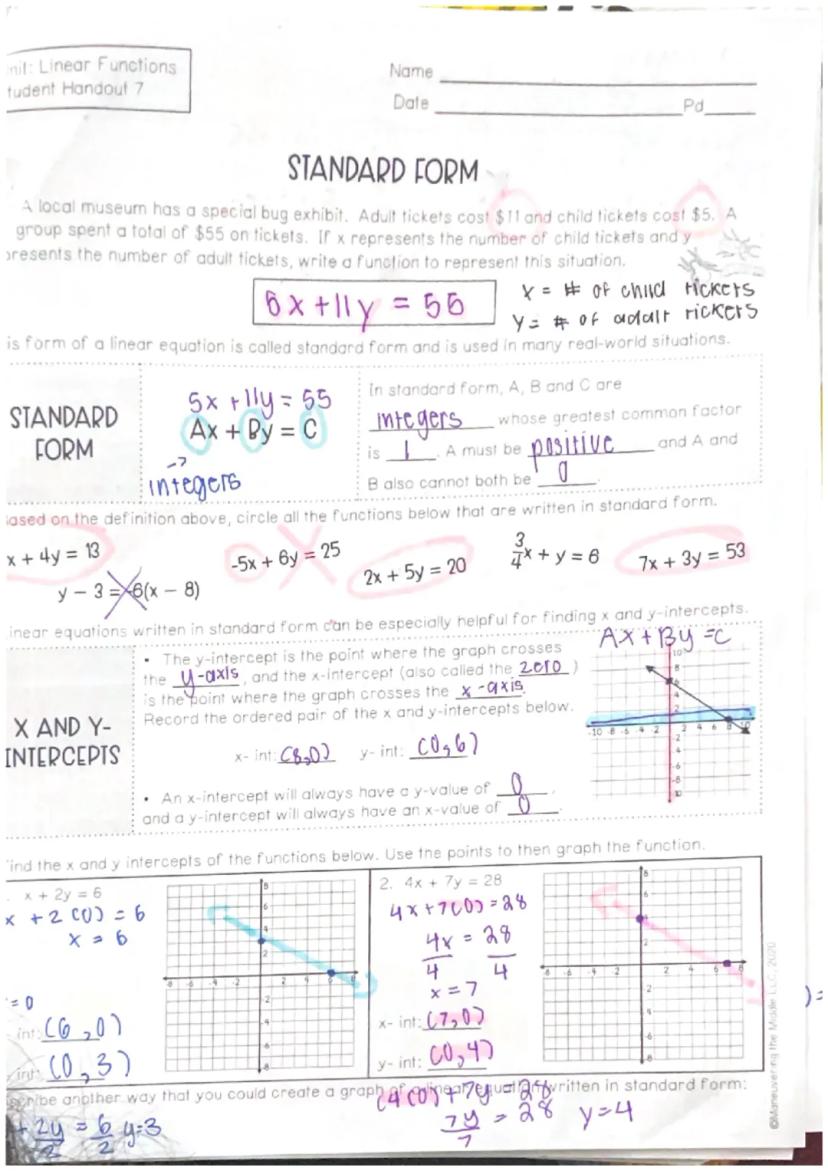 nit: Linear Functions
tudent Handout 7
Name
Date Pd
STANDARD FORM
A local museum has a special bug exhibit. Adult tickets cost $11 and child tickets cost $5. A
group spent a total of $55 on tickets. If x represents the number of child tickets and y
presents the number of adult tickets, write a function to represent this situation.
5x+11y = 55
x = # of child tickets
y = # of adult tickets
is form of a linear equation is called standard form and is used in many real-world situations.
STANDARD
FORM
5x + 11y = 55
Ax + By = C
→
integers
In standard form, A, B and C are
integers whose greatest common factor
is 1. A must be positive and A and
B also cannot both be 0.
ased on the definition above, circle all the functions below that are written in standard form.
x + 4y = 13
y - 3 = -6(x - 8)
-5x + 6y = 25
2x + 5y = 20
3/4x + y = 6
7x + 3y = 53
inear equations written in standard form can be especially helpful for finding x and y-intercepts.
X AND Y-
INTERCEPTS
• The y-intercept is the point where the graph crosses
the y-axis, and the x-intercept (also called the zero)
is the point where the graph crosses the x-axis.
Record the ordered pair of the x and y-intercepts below.
x- int: (8,0) y- int: (0,6)
• An x-intercept will always have a y-value of 0
and a y-intercept will always have an x-value of 0.
Ax+By=C
ind the x and y intercepts of the functions below. Use the points to then graph the function.
. x + 2y = 6
x + 2(0) = 6
x = 6
=0
int: (6,0)
int: (0,3)
2. 4x + 7y = 28
4x+7(0)=28
4x = 28
4 4
x = 7
x- int: (7,0)
y- int: (0,4)
scribe another way that you could create a graph of a linear equation written in standard form:
(4(0)+7y=28
7y = 28 y=4
7
+ 2y = 6 y=3
2 2
©Maneuvering the Middle LLC, 2020